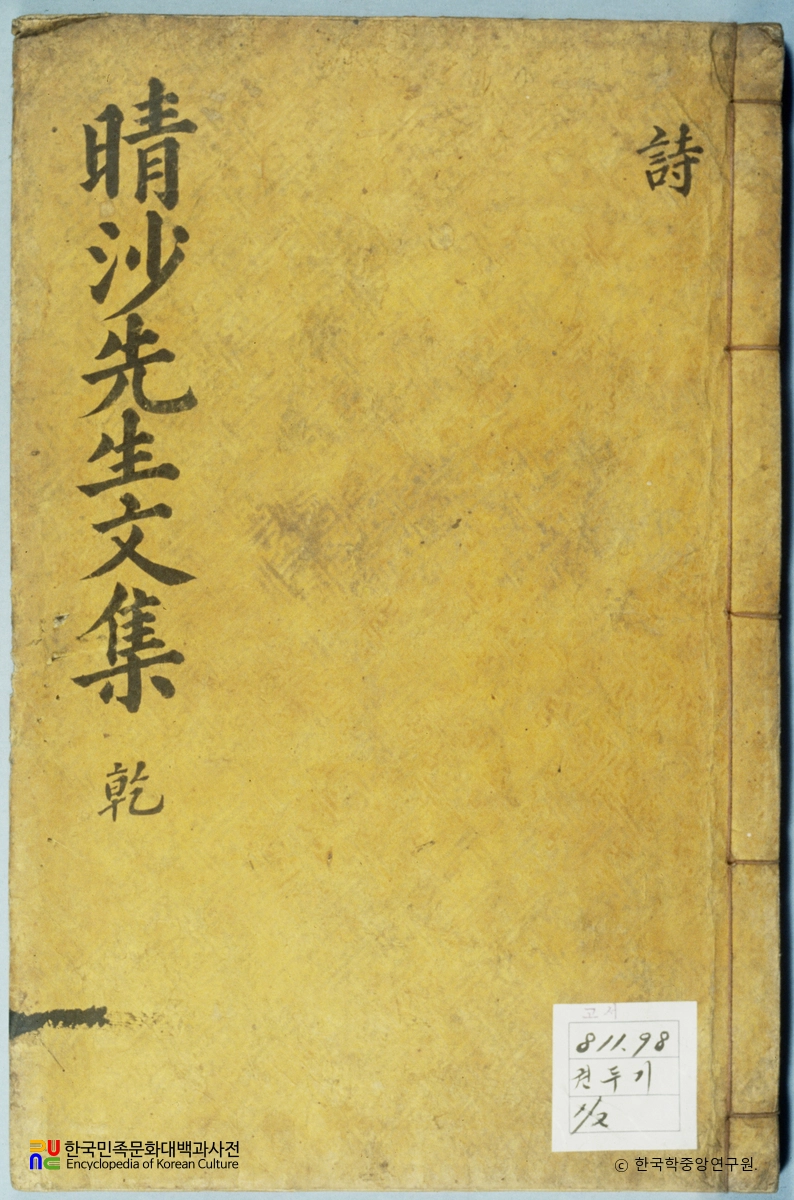 詩
晴沙先生文集 乾
고서
811.98
권두기
1/2
한국민족문화대백과사전
Encyclopedia of Korean Culture
ⓒ 한국학중앙연구원.